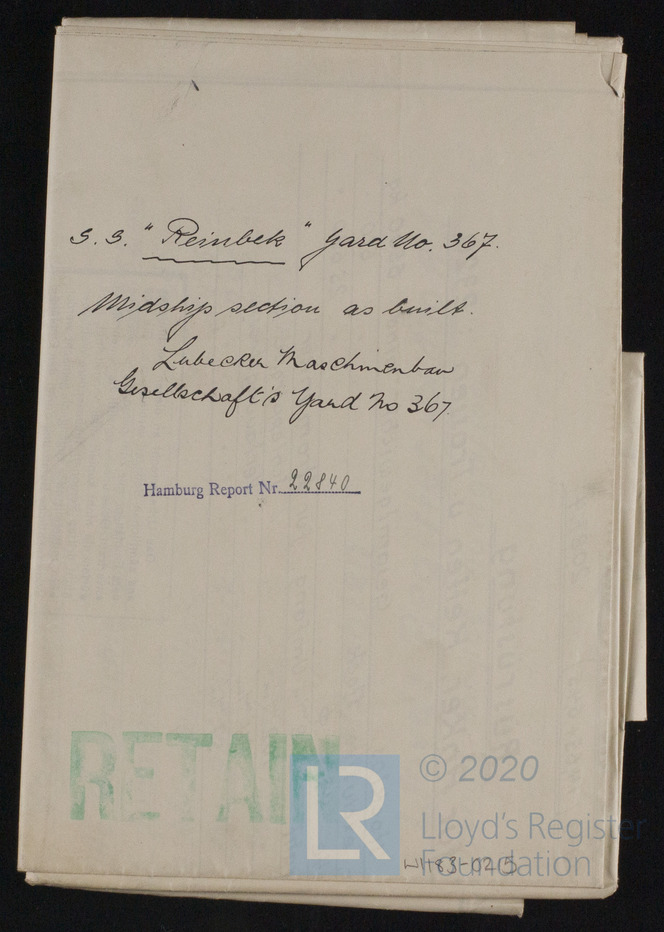 S. S. "Reinbek" Yard No. 367.
Midship section as built.
Lubecker Maschinenbau
Gesellschaft's Yard No 367
Hamburg Report Nr. 22840
RETAIN
LR
© 2020
Lloyd's Register
Foundation
W183-0215